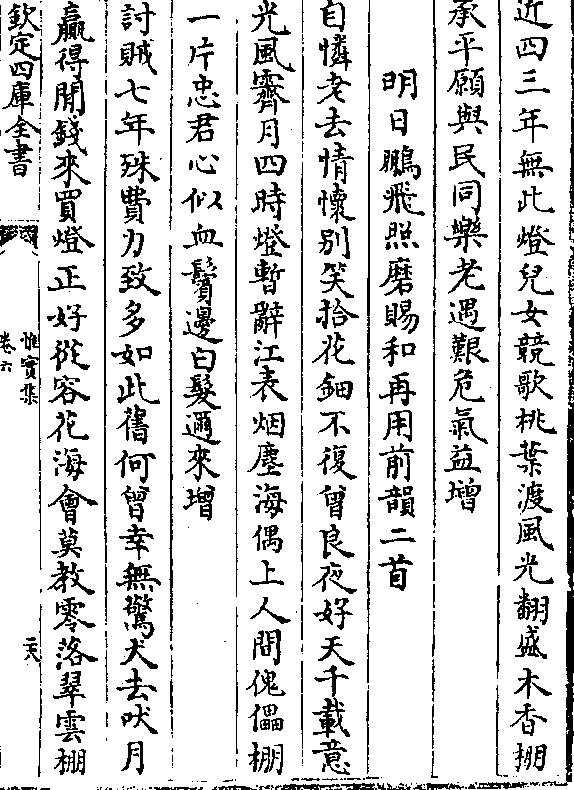 近四三年無此燈兒女競歌桃葉渡風光翻盛木香掤
承平願與民同樂老遇艱危氣益增
明日鵬飛照磨賜和再用前韻二首
自憐老去情懷别笑拾花鈿不復曾良夜好天千載意
光風霽月四時燈暫辭江表烟塵海偶上人間傀儡棚
一片忠君心似血鬢邊白髮邇來增
討賊七年殊費力致多如此舊何曾幸無驚犬去吠月
贏得閒錢來買燈正好從容花海會莫教零落翠雲棚
欽定四庫全書
惟實集
卷六
二六